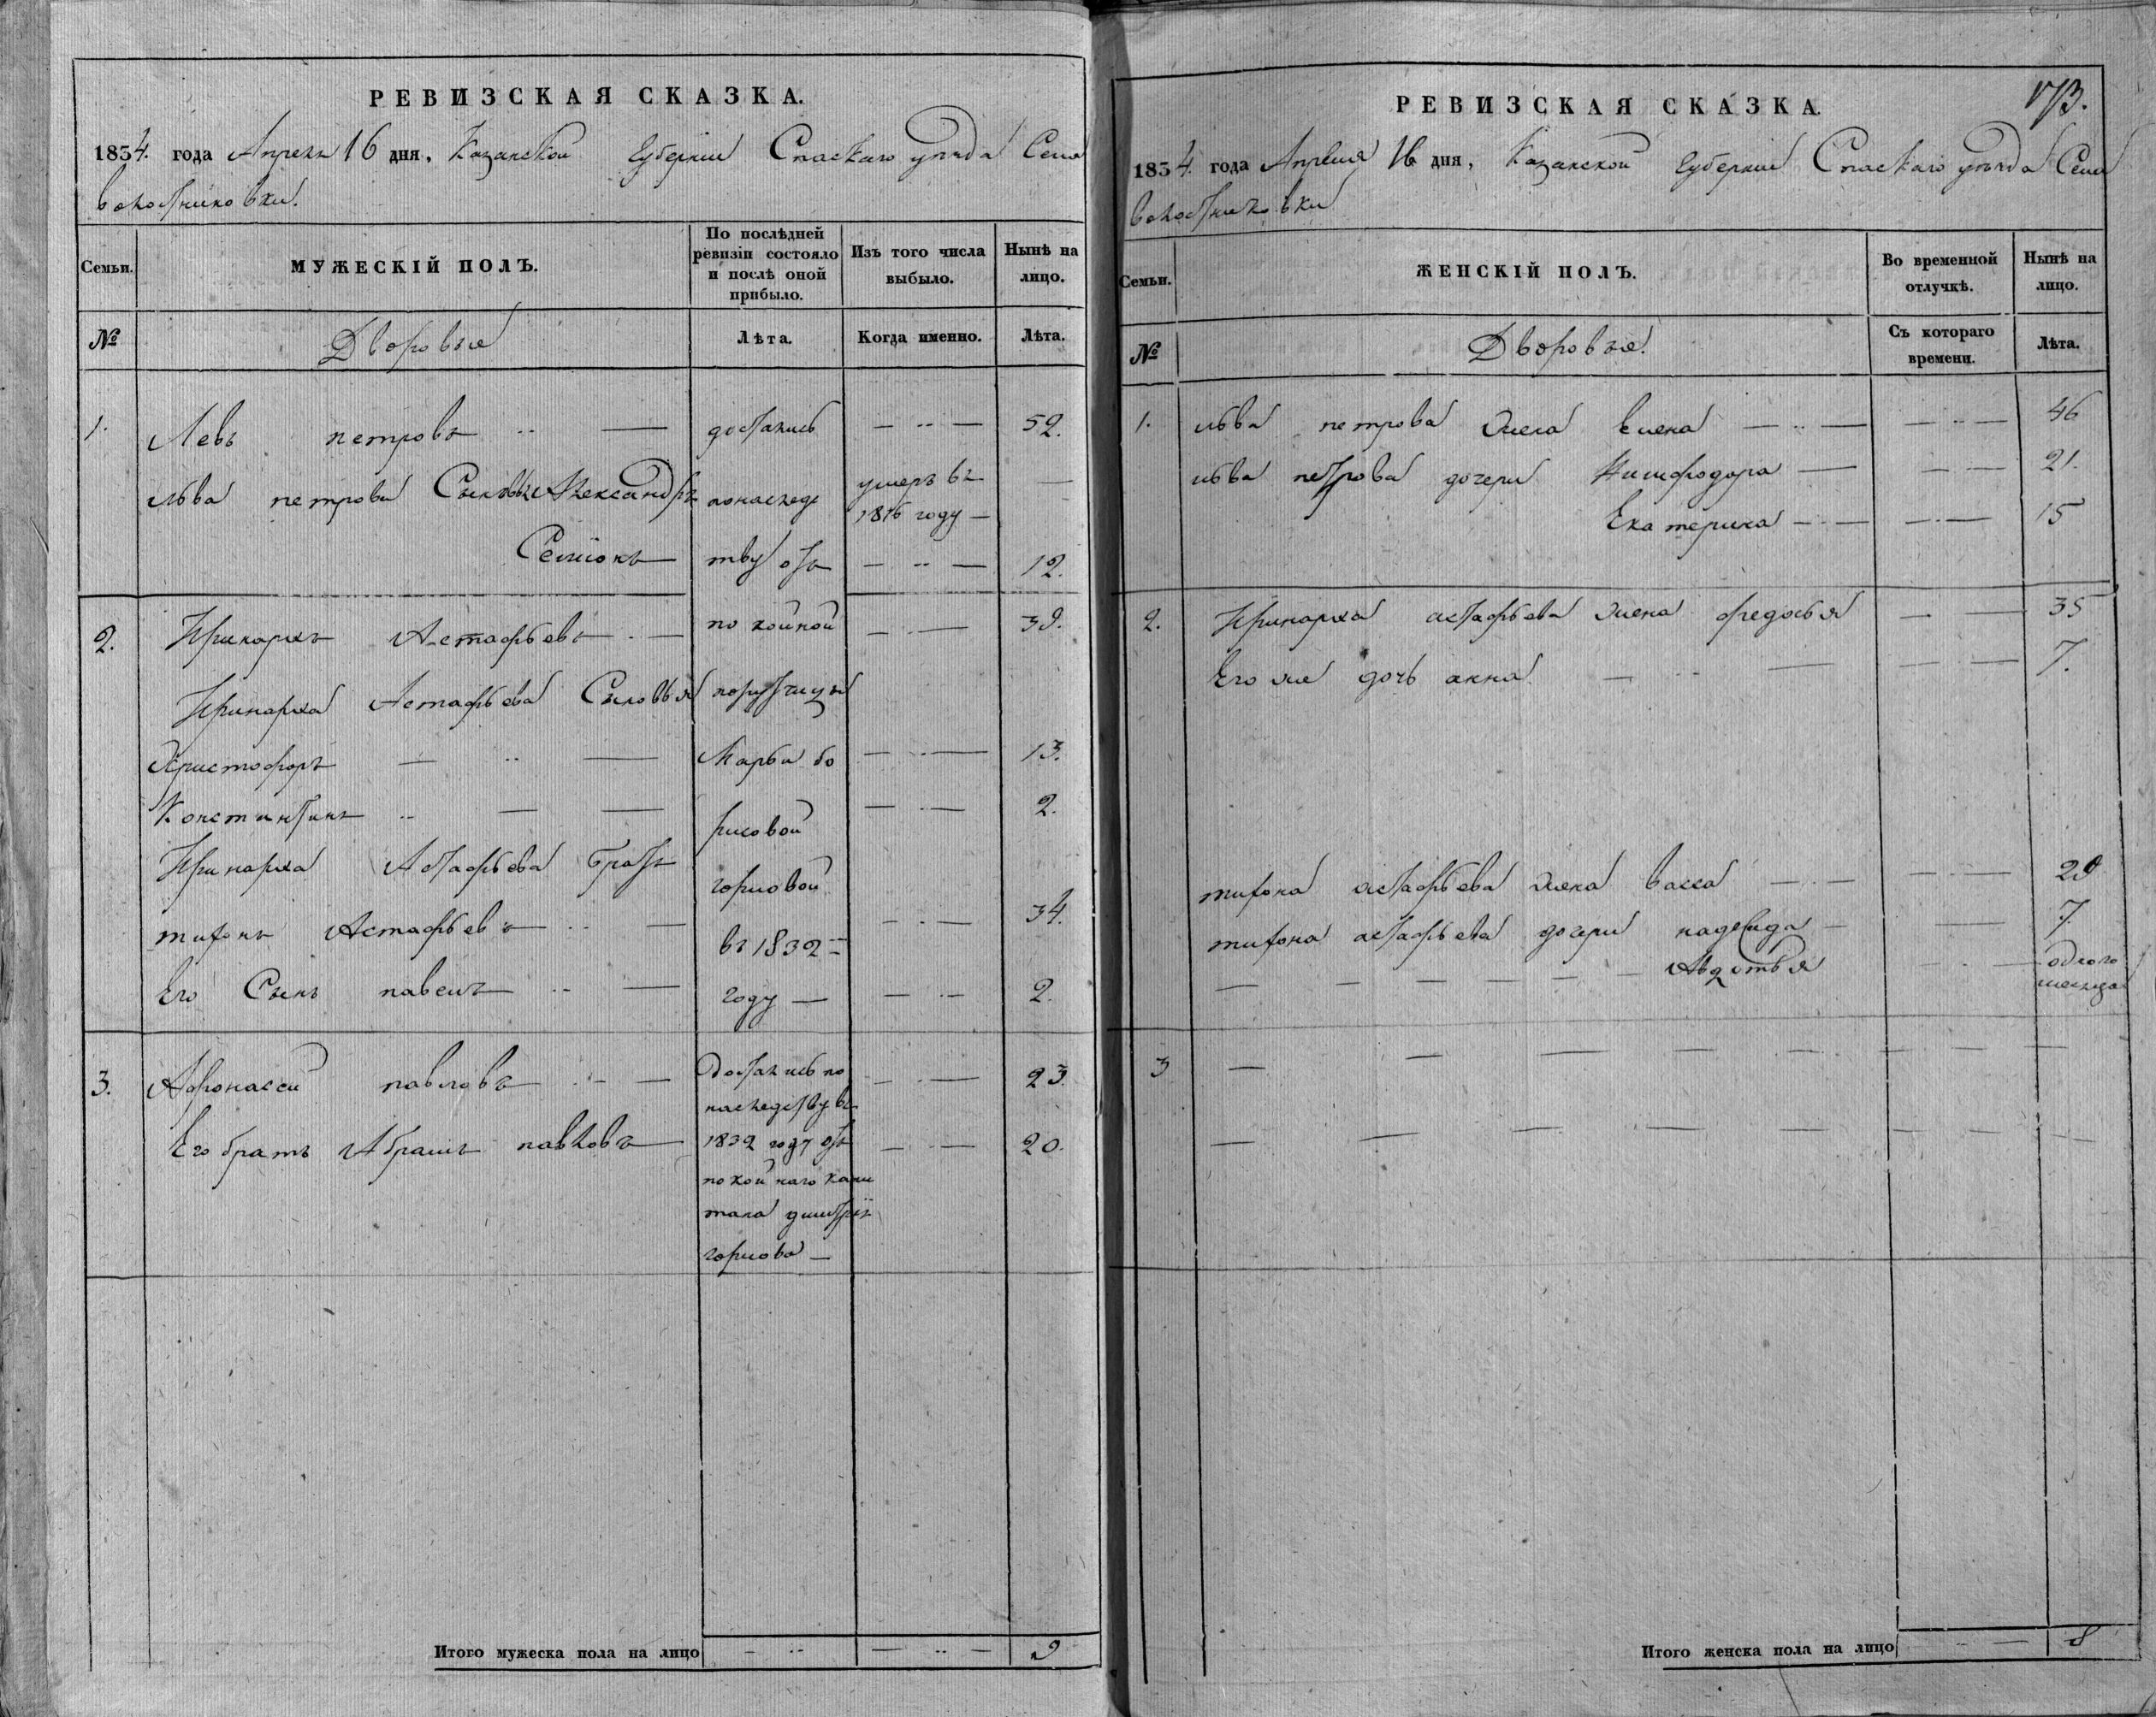 РЕВИЗСКАЯ СКАЗКА.
1834. года Апреля 16 дня, Казанской Губернии Спаскаго уезда Села
волостниковки.
Семьи. МУЖЕСКІЙ ПОЛЪ. По послѣдней ревизіи состояло и послѣ оной прибыло. Изъ того числа выбыло. Нынѣ на лицо.
№ Дворовыя Лѣта. Когда именно. Лѣта.
1. Левъ петровъ достались 52.
льва петрова Сыновья Александръ понаслед умеръ въ 1816 году
Семіонъ тву отъ 12.
2. Иринархъ Астафьевъ покойной 39.
Иринарха Астафьева Сыновья порутчицы
Христофоръ Марьи бо 13.
Констинтинъ рисовой 2.
Иринарха Астафьева братъ горловой
тихонъ Астафьевъ въ 1832 34.
Его Сынъ павелъ году 2.
3. Афонасеи павловъ Достались по 23.
наследству въ
Его братъ Абрамъ павловъ 1832 году отъ 20.
покойнаго капи
тана дмитрея
горлова
Итого мужеска пола на лицо 9
173.
РЕВИЗСКАЯ СКАЗКА.
1834. года Апреля 16 дня, Казанской Губернии Спаскаго уезда Села
волостниковки
Семьи. ЖЕНСКІЙ ПОЛЪ. Во временной отлучкѣ. Нынѣ на лицо.
№ Дворовыя. Съ котораго времени. Лѣта.
1. льва петрова жена Елена 46
льва петрова дочери Нимфодора 21.
Екатерина 15
2. Иринарха астафьева жена федосья 35
Его же дочь анна 7.
тихона астафьева жена васса 29
тихона астафьева дочери надежда 7.
Авдотья одного
месяца
3
Итого женска пола на лицо 8